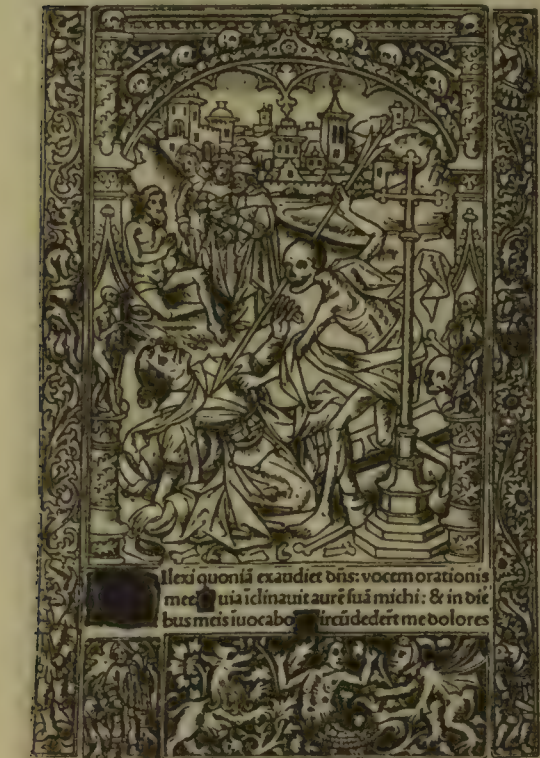 ilexi quoniā exaudiet dñs: vocem orationis
mee uia īclinauit aurē ſuā michi: & in die
bus meis iuocabo ircūdederūt me dolores